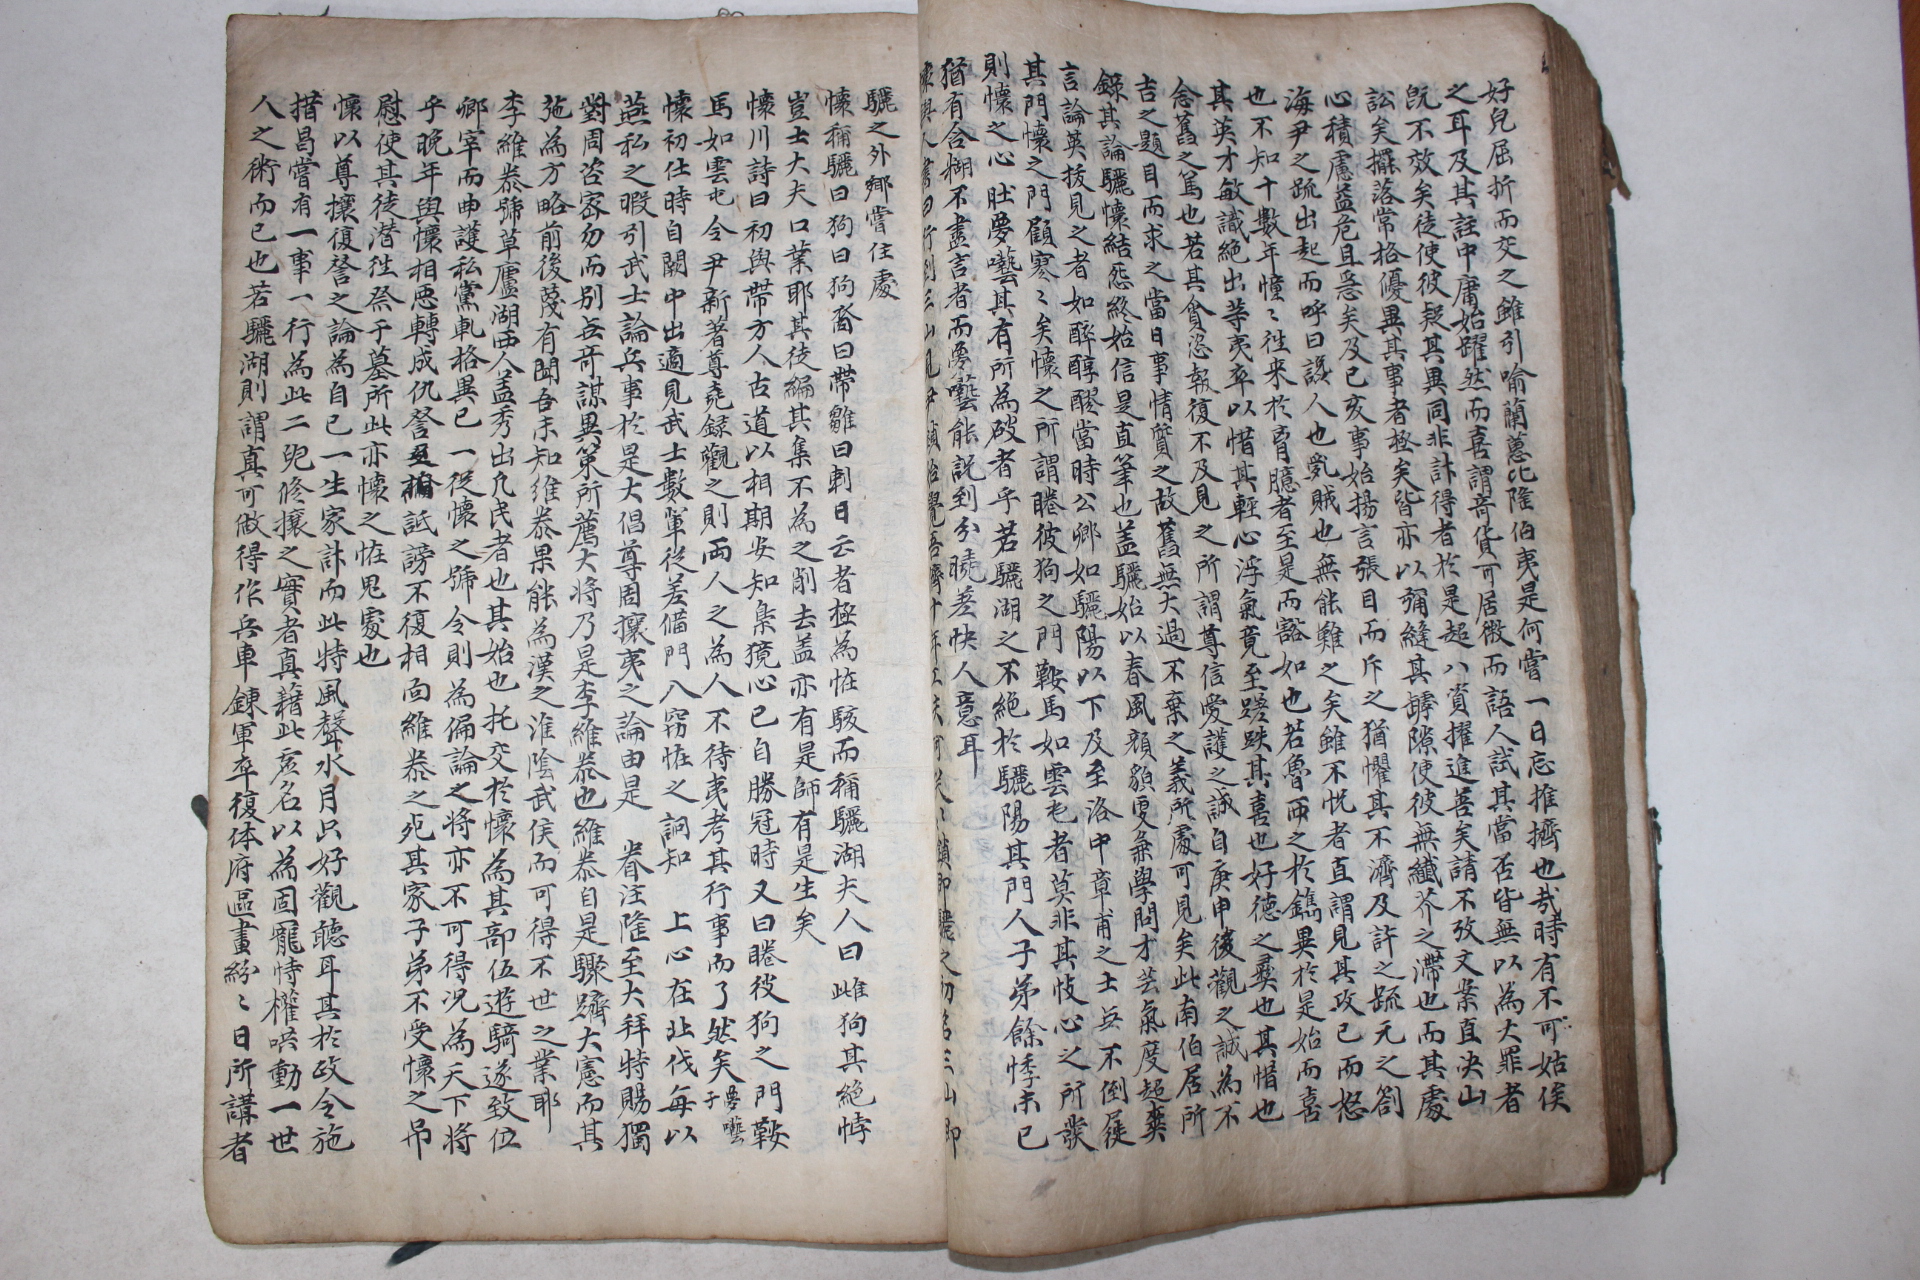 好兒屈折而交之雖引喻蘭蕙比隆伯夷是何嘗一日忘推擠也哉時有不可姑俟
之耳及其註中庸始躍然而喜謂奇貨可居微而語人試其當否皆無以為大罪者
旣不效矣徒使彼疑其異同非訃得者於是超八資擢進善矣請不攷文案直決山
訟矣攞落常格優異其事者極矣皆亦以彌縫其罅隙使彼無纖芥之滯也而其處
心積慮益危且惡矣及己亥事始揚言張目而斥之猶懼其不濟及許之䟽元之劄
海尹之䟽出起而呼曰誤人也亂賊也無能難之矣雖不悅者直謂見其攻己而怒
也不知十數年憧〻徃來於胷臆者至是而豁如也若魯西之於鑴異於是始而喜
其英才敏識絶出等夷卒以惜其輕心浮氣竟至蹉跌其喜也好德之彛也其惜也
念舊之篤也若其貪恣報復不及見之所謂尊信愛護之誠自庚申後觀之誠為不
吉之題目而求之當日事情質之故舊無大過不棄之義所處可見矣此南伯居所
錄其論驪懷結怨終始信是直筆也盖驪始以春風顔貌更兼學問才芸氣度超爽
言論英拔見之者如醉醇醪當時公卿如驪陽以下及至洛中章甫之士無不倒屣
其門懷之門顧寒〻矣懷之所謂睠彼狗之門鞍馬如雲屯者莫非其忮心之所發
則懷之心肚夢囈其有所為破者乎若驪湖之不絶於驪陽其門人子弟餘悸未已
猶有含糊不盡言者而夢囈能說到分曉差快人意耳
驪之外鄉嘗住處
懷稱驪曰狗曰狗裔曰帶雛曰剌日云者極為恠駭而稱驪湖夫人曰雌狗其絶悖
豈士大夫口業耶其徒編其集不為之削去盖亦有是師有是生矣
懷川詩曰初與帶方人古道以相期安知梟獍心已自勝冠時又曰睠彼狗之門鞍
馬如雲屯今尹新著尊堯錄觀之則兩人之為人不待夷考其行事而了然矣夢囈子
懷初仕時自闕中出適見武士數軰從差備門入窃恠之詗知 上心在北伐每以
燕私之暇引武士論兵事於是大倡尊周攘夷之論由是 眷注隆至大拜特賜獨
對周咨密勿而別無奇謀異策所薦大將乃是李維㤗也維㤗自是驟躋大憲而其
施為方略前後蔑有聞吾未知維㤗果能為漢之淮陰武侯而可得不世之業耶
李維㤗號草廬湖西人盖秀出凡民者也其始也托交於懷為其部伍遊騎遂致位
卿宰而曲護私黨軋格異己一從懷之號令則為偏論之將亦不可得况為天下將
乎晩年與懷相惡轉成仇讐詆謗不復相面維㤗之死其家子弟不受懷之吊
慰使其徒潛徃祭于墓所此亦懷之恠鬼處也
懷以尊攘復讐之論為自己一生家計而此特風聲水月只好觀聽耳其於政令施
措曷嘗有一事一行為此二兒修攘之實者真藉此虛名以為固寵恃權哄動一世
人之術而已也若驪湖則謂真可做得作兵車鍊軍卒復体府區畫紛〻日所講者